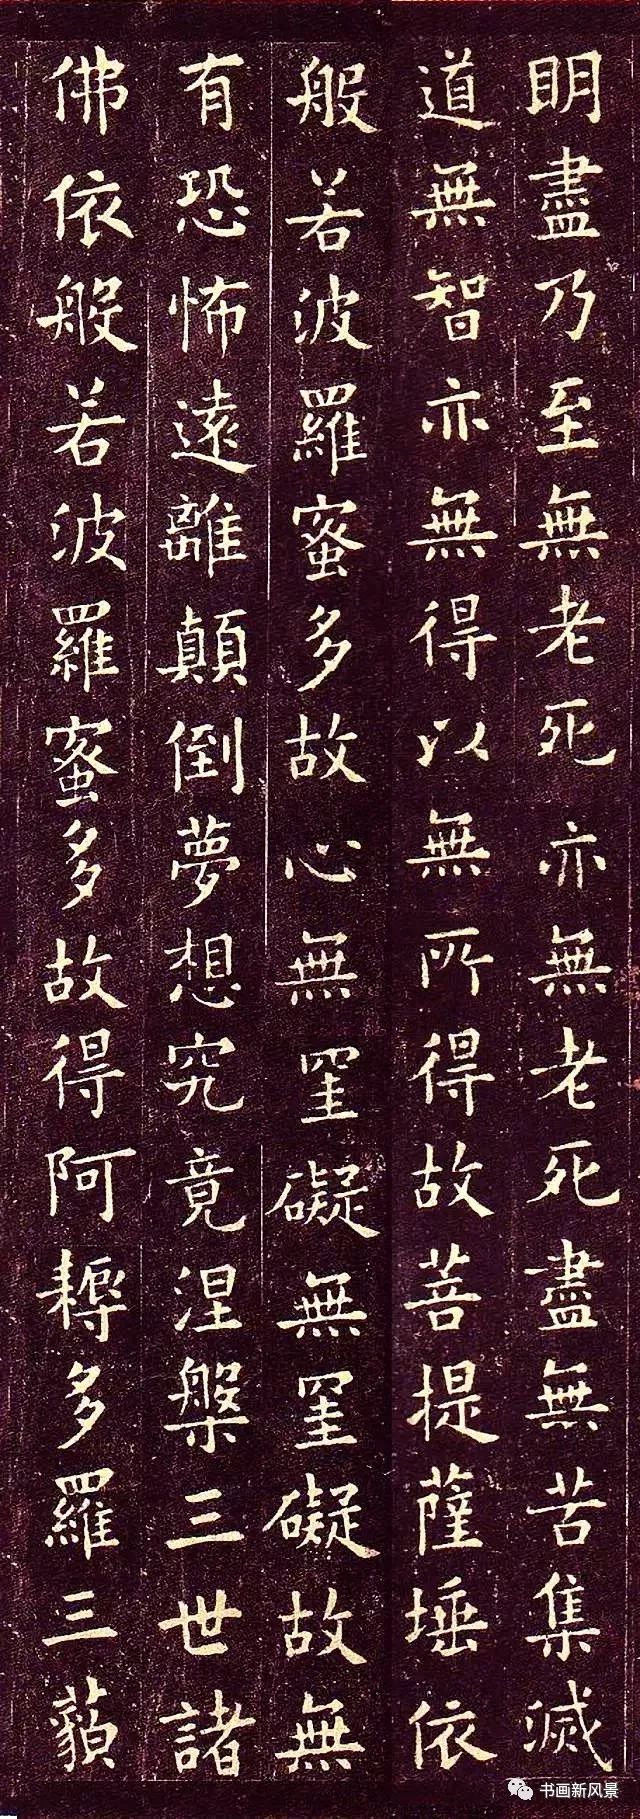 明盡乃至無老死亦無老死盡無苦集滅
道無智亦無得以無所得故菩提薩埵依
般若波羅蜜多故心無罣礙無罣礙故無
有恐怖遠離顛倒夢想究竟涅槃三世諸
佛依般若波羅蜜多故得阿耨多羅三藐
书画新风景